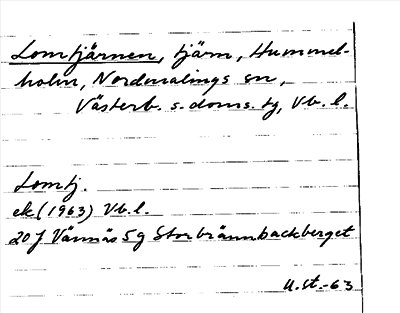 Lomtjärnen, tjärn, Hummel-
holm, Nordmalings sn,
Västerb. s. doms. tg, Vb. l.
Lomtj.
ek (1963) Vb. l.
20 J Vännäs 5 g Storbrännbackberget
U.st.-63